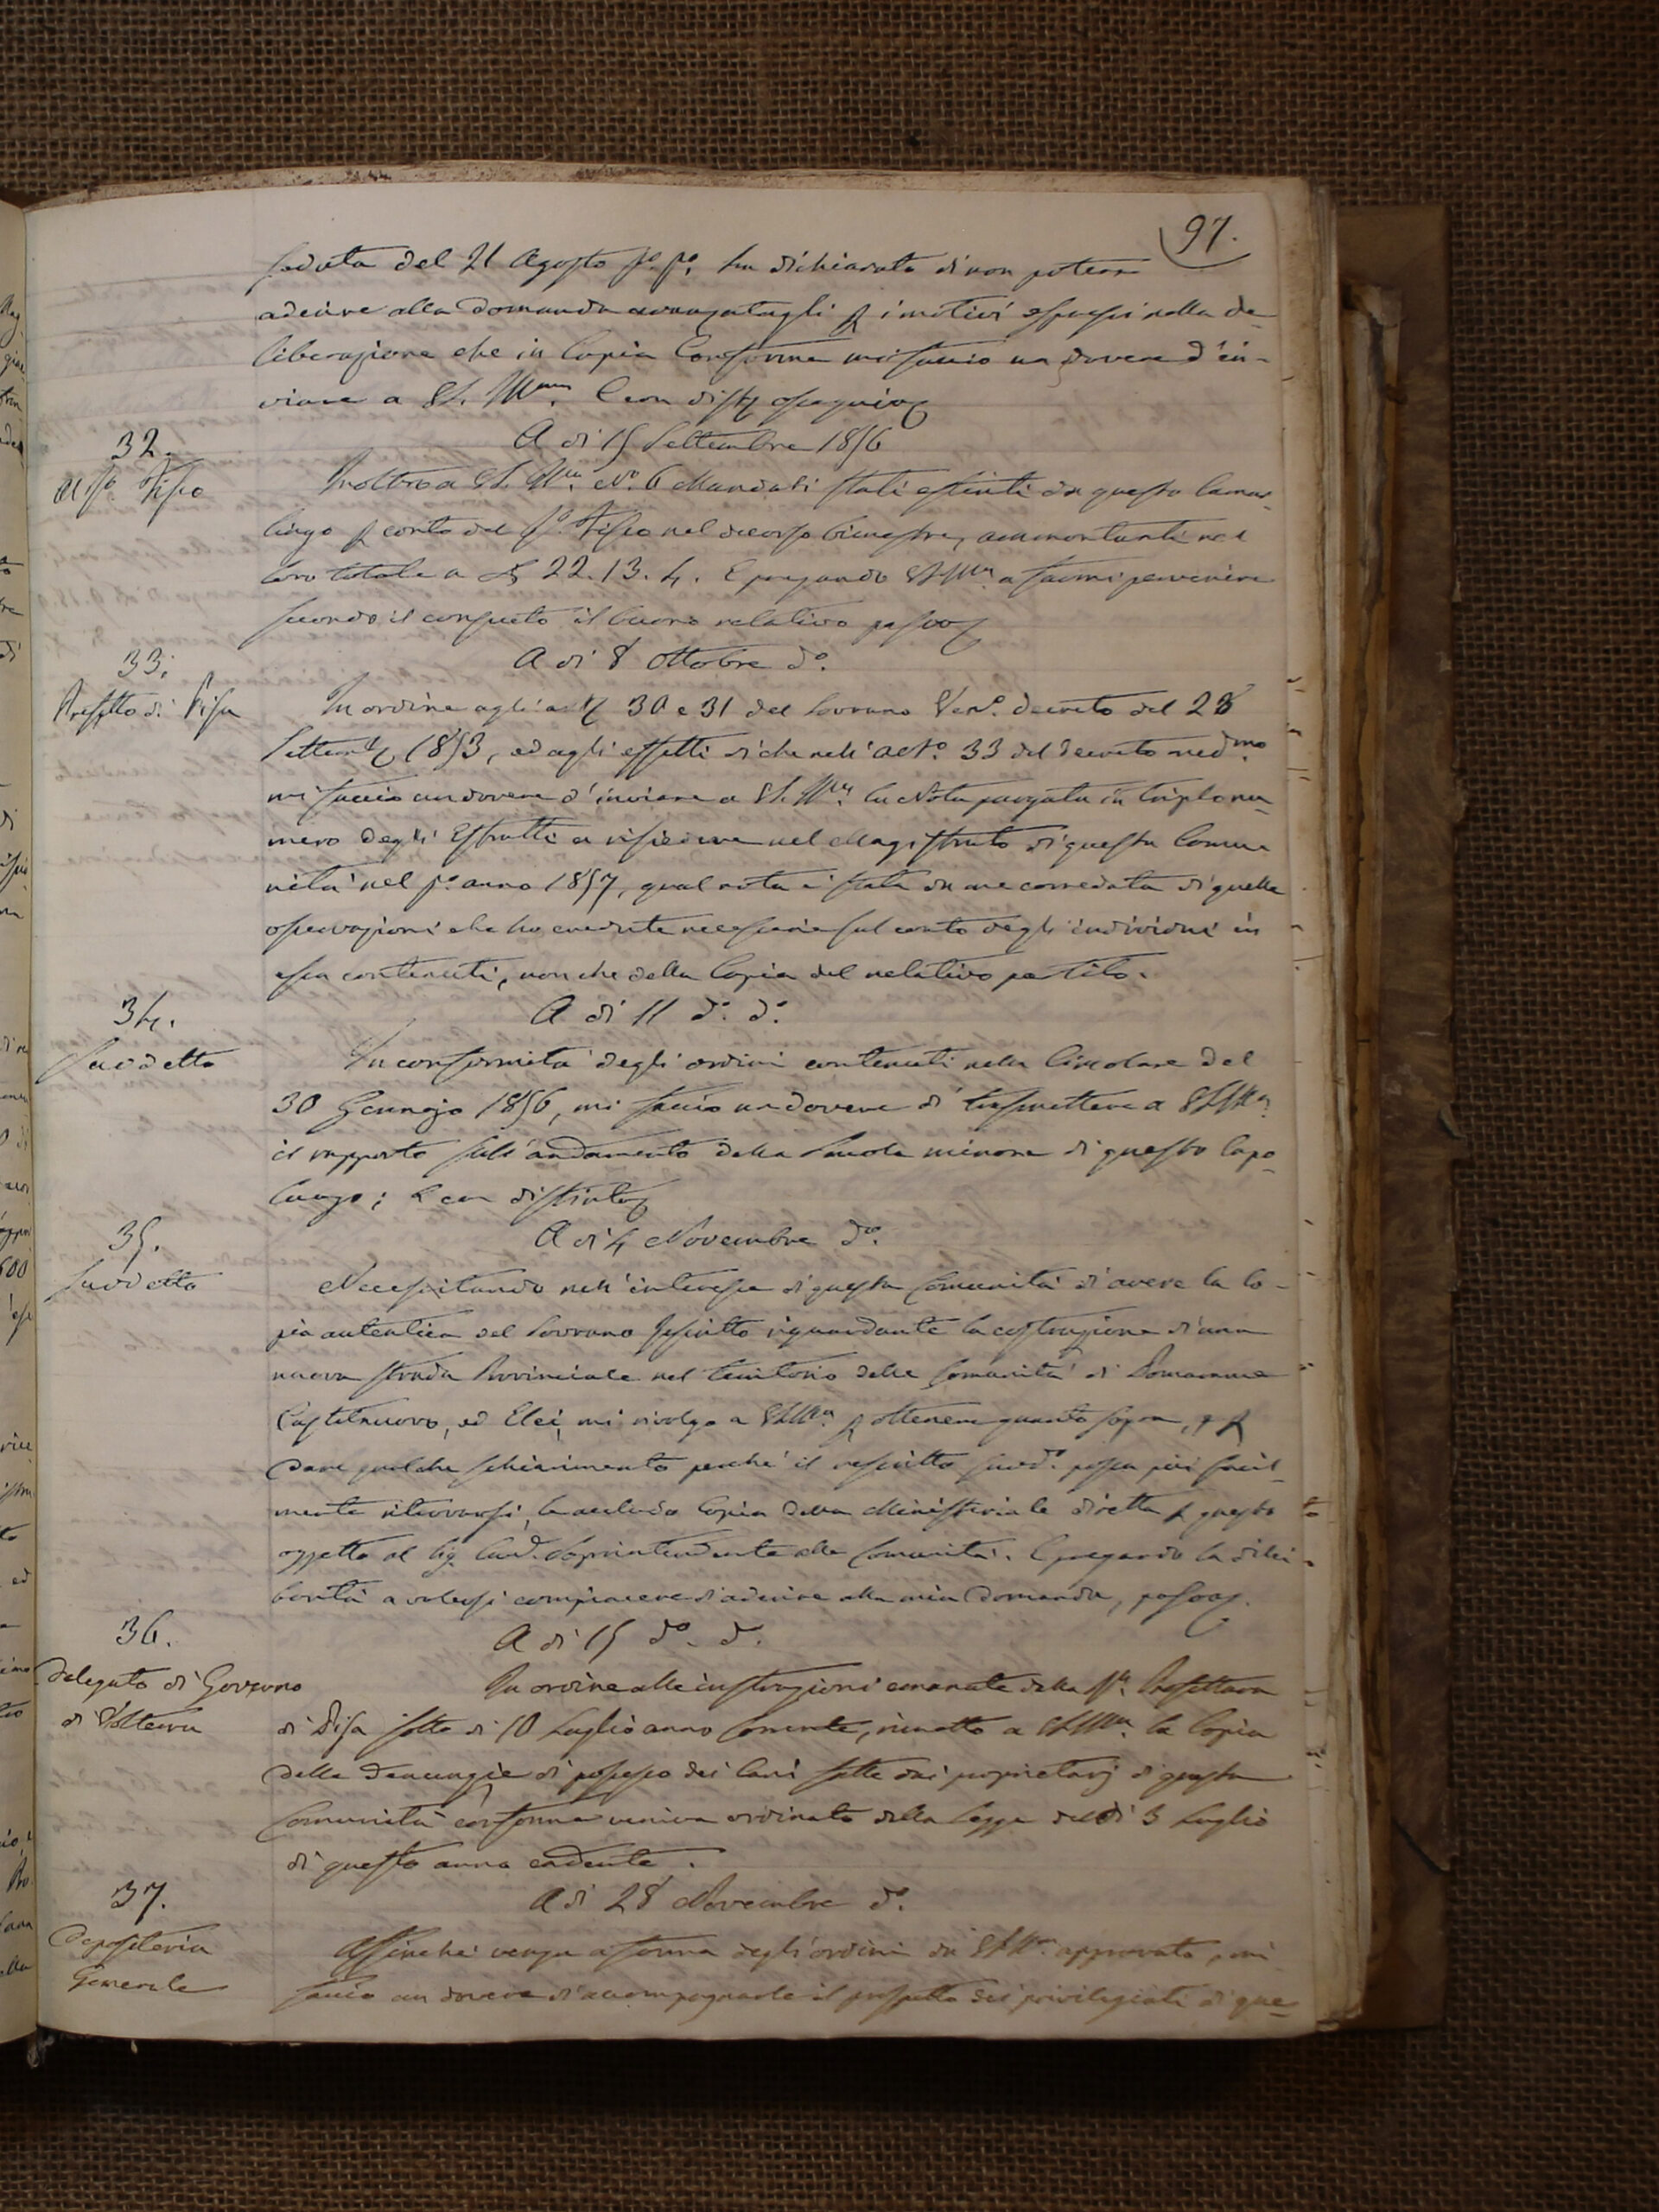 97.
seduta del 21 Agosto p.o p.o ha dichiarato di non potere
aderire alla domanda avanzatagli p i motivi espressi nella de-
liberazione che in Copia Conforme mi faccio un dovere d'in-
viare a VS. Ill.ma E con
A di 15 Settembre 1856
32.
R.o Fisco
Inoltro a VS. Ill.ma N.o 6 Mandati stati estinti da questo Camar-
lingo p conto del R.o Fisco nel decorso bimestre, ammontanti nel
loro totale a £ 22.13.4. E pregando VS Ill.ma a farmi pervenire
secondo il consueto il buono relativo passo
A di 8 Ottobre d.o
33.
Prefetto di Pisa
In ordine agli art 30 e 31 del Sovrano Ven.o decreto del 28
Settemb 1853, ed agli effetti di che nell'art.o 33 del decreto med.mo
mi faccio un dovere d'inviare a VS. Ill.ma la Nota purgata in triplo nu
mero degli Estratti a risiedere nel Magistrato di questa Comu
nità nel p.o anno 1857, qual nota è stata da me corredata di quelle
osservazioni che ho credute necessarie sul conto degli individui in
essa contenuti, non che della Copia del relativo partito.
A di 11 d.o d.o
34.
Suddetto
In conformità degli ordini contenuti nella Circolare del
30 Gennajo 1856, mi faccio un dovere di trasmettere a VS Ill.ma
il rapporto sull'andamento della Scuola minore di questo Capo
luogo; E con distinto
A di 4 Novembre d.o
35.
Suddetto
Necessitando nell'interesse di questa Comunità di avere la Co-
pia autentica del Sovrano Rescritto riguardante la costruzione di una
nuova strada Provinciale nel territorio delle Comunità di Pomarance
Castelnuovo, ed Elci, mi rivolgo a VS Ill.ma p ottenere quanto sopra, e p
dare qualche schiarimento perché il rescritto sud.o possa più facil-
mente ritrovarsi, le accludo Copia della Ministeriale diretta p questo
oggetto al Sig. Soprintendente alle Comunità. E pregando la di lei
bontà a volersi compiacere di aderire alla mia domanda, passo
A di 15 d.o d.o
36.
Delegato di Governo
di Volterra
In ordine alle istruzioni emanate dalla R. Prefettura
di Pisa sotto di 10 Luglio anno Corrente, rimetto a VS Ill.ma la Copia
delle denunzie di possesso dei Cani fatte dai proprietarj di questa
Comunità conforme veniva ordinato dalla Legge del dì 3 Luglio
di questo anno cadente.
A di 28 Novembre d.o
37.
Depositeria
Generale
Affinché venga a forma degli ordini da VS Ill.ma approvato, mi
faccio un dovere di accompagnarle il prospetto dei privilegiati di que-